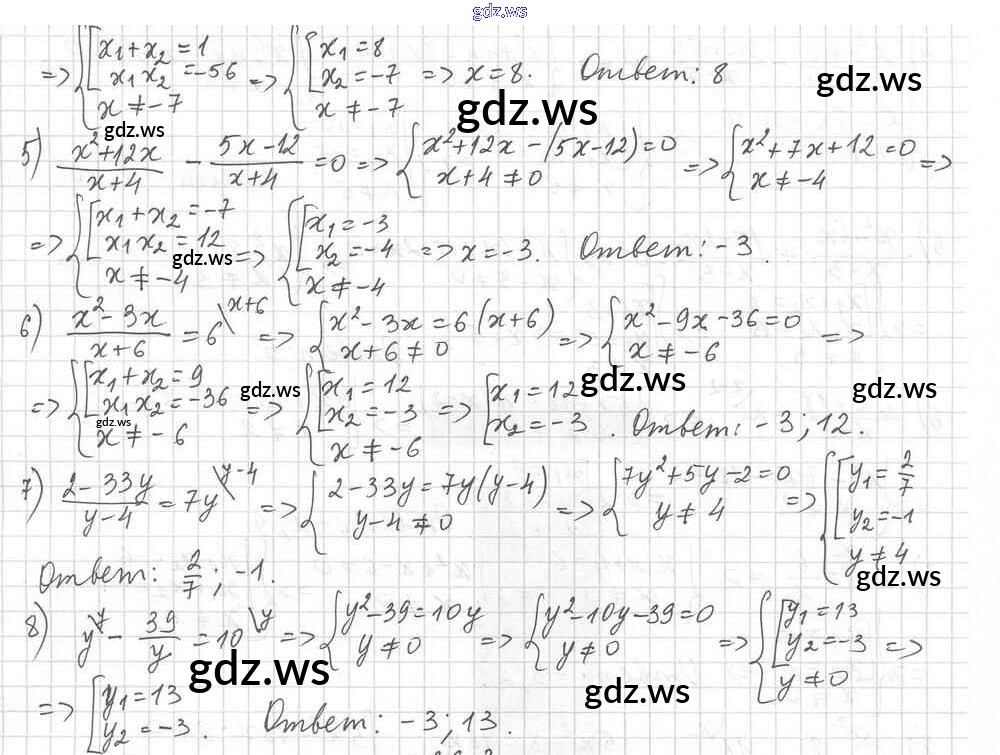 gdz.ws
=> { [ x₁+x₂=1 x₁x₂=-56 x≠-7 => { [ x₁=8 x₂=-7 x≠-7 => x=8. Ответ: 8
gdz.ws
gdz.ws
gdz.ws
5) (x²+12x)/(x+4) - (5x-12)/(x+4) =0 => { x²+12x-(5x-12)=0 x+4≠0 => { x²+7x+12=0 x≠-4 =>
=> { [ x₁+x₂=-7 x₁x₂=12 x≠-4 => { [ x₁=-3 x₂=-4 x≠-4 => x=-3. Ответ: -3.
gdz.ws
gdz.ws
6) (x²-3x)/(x+6) = 6\x+6 => { x²-3x=6(x+6) x+6≠0 => { x²-9x-36=0 x≠-6 =>
=> { [ x₁+x₂=9 x₁x₂=-36 x≠-6 => { [ x₁=12 x₂=-3 x≠-6 => [ x₁=12 x₂=-3. Ответ: -3; 12.
gdz.ws
gdz.ws
gdz.ws
gdz.ws
7) (2-33y)/(y-4) = 7y\y-4 => { 2-33y=7y(y-4) y-4≠0 => { 7y²+5y-2=0 y≠4 => { [ y₁=2/7 y₂=-1 y≠4
Ответ: 2/7; -1.
gdz.ws
8) y\y - 39/y = 10\y => { y²-39=10y y≠0 => { y²-10y-39=0 y≠0 => { [ y₁=13 y₂=-3 y≠0 =>
gdz.ws
gdz.ws
=> [ y₁=13 y₂=-3. Ответ: -3; 13.